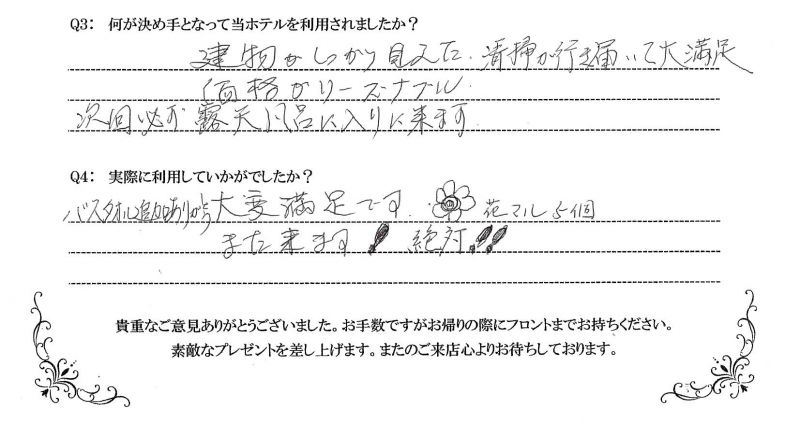 Q3: 何が決め手となって当ホテルを利用されましたか？
建物がしっかり見えた.清掃が行き届いて大満足
価格がリーズナブル.
次回必ず露天風呂に入りに来ます
Q4: 実際に利用していかがでしたか？
バスタオル追加ありがとう大変満足です. 花マル5個
また来ます! 絶対!!
貴重なご意見ありがとうございました。お手数ですがお帰りの際にフロントまでお持ちください。
素敵なプレゼントを差し上げます。またのご来店心よりお待ちしております。